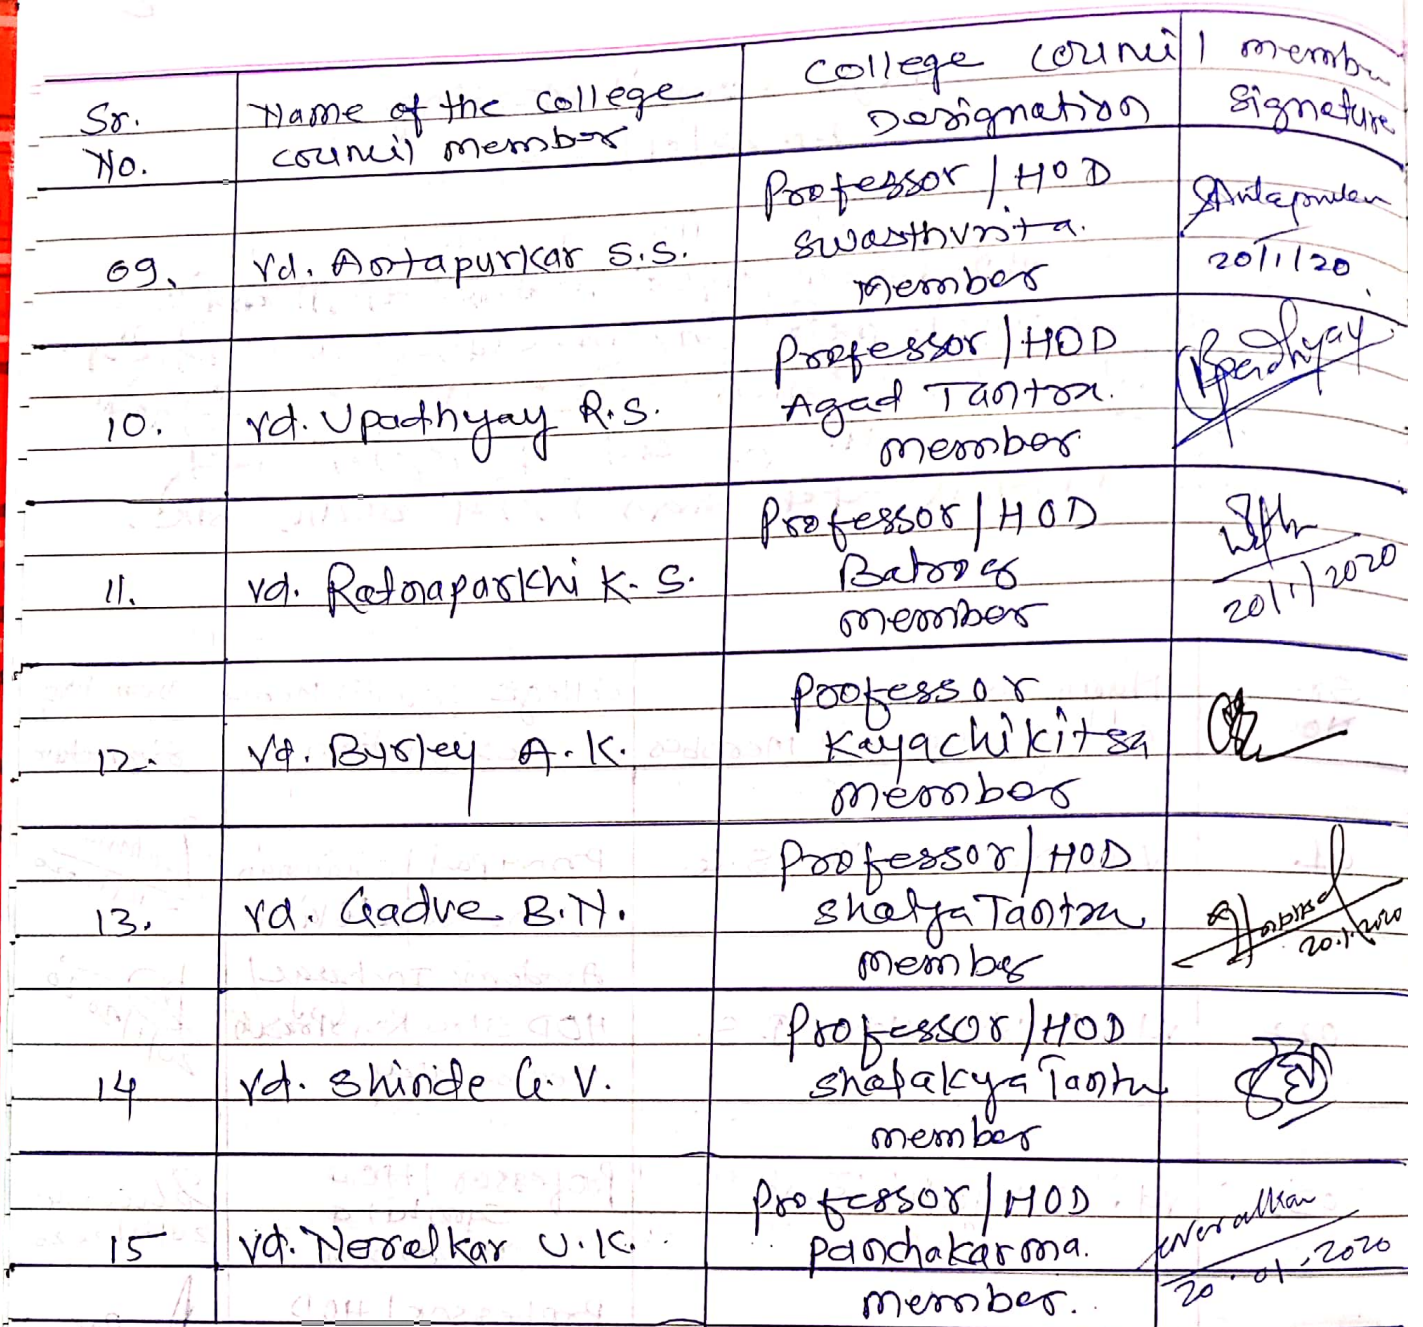 Sr. No.
Name of the college council member
College council member Designation
Signature
09. Vd. Antapurkar S.S.
Professor / HOD
Swasthvrita.
Member
20/1/20
10. Vd. Upadhyay R.S.
Professor / HOD
Agad Tantra.
member
Upadhyay
11. Vd. Ratnaparkhi K. S.
Professor / HOD
member
20/1/2020
12. Vd. Burley A. K.
Professor
Kayachikitsa
member
13. Vd. Gadve B.N.
Professor / HOD
Shalya Tantra
member
20.1.2020
14 Vd. Shinde G. V.
Professor / HOD
Shalakya Tantra
member
15 Vd. Neralkar U.K.
Professor / HOD
Panchakarma.
member.
Neralkar
20.01.2020